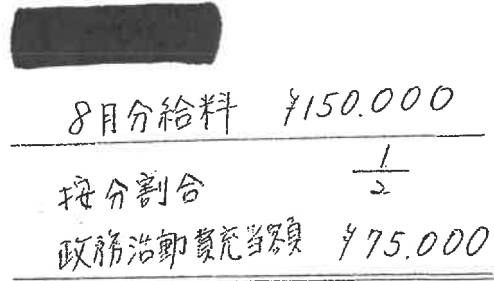 8月分給料 ¥150.000
按分割合 1/2
政務活動費充当額 ¥75.000